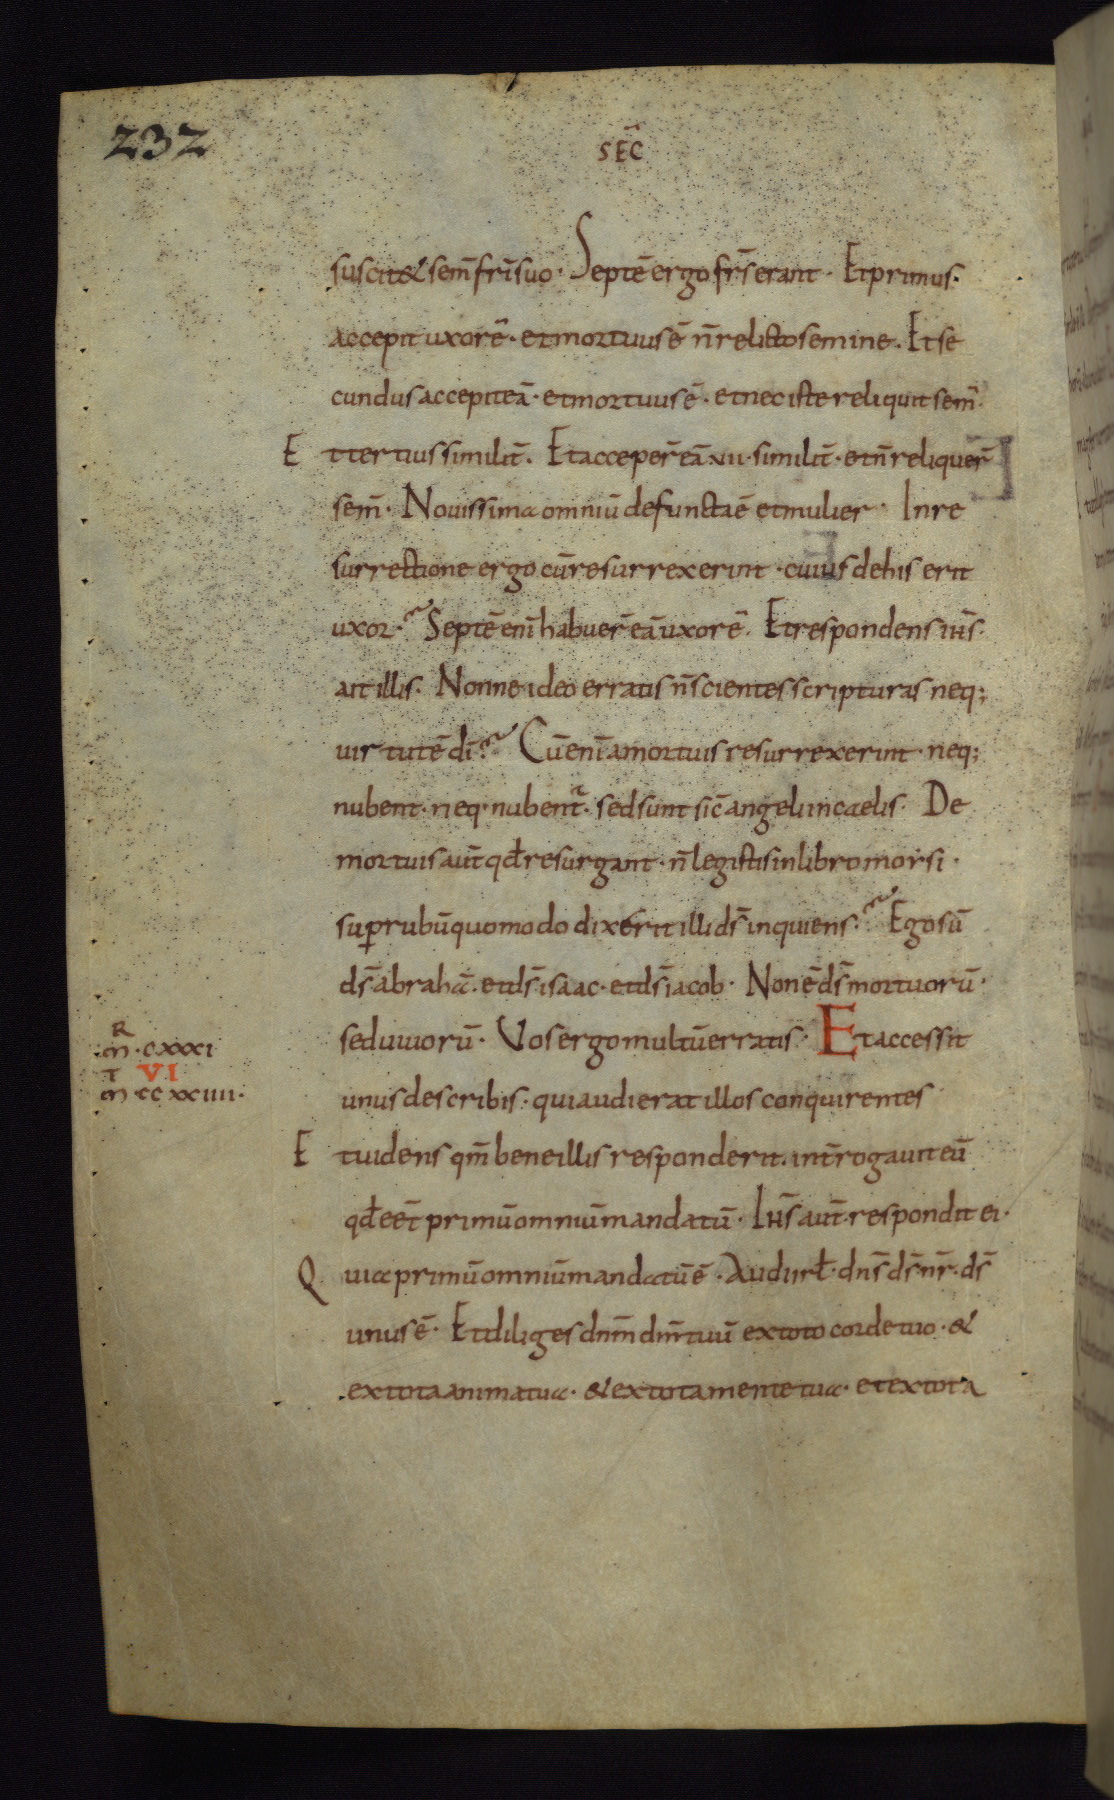 232
SEC̄
suscit& sem̄ fr̄i suo· Septē ergo fr̄s erant· Et primus·
accepit uxorē· et mortuus ē n̄ relicto semine. Et se
cundus accepit eā· et mortuus ē· et nec iste reliquit sem̄·
Et tertius similit̄. Et acceper̄ eā vii· similit̄· et n̄ reliquer̄
sem̄· Nouissima omniū defuncta ē et mulier· In re
surrectione ergo cū resurrexerint· cuius de his erit
uxor·? Septē enī habuer̄ eā uxorē. Et respondens ih̄s·
ait illis. Nonne ideo erratis n̄ scientes scripturas neq;
uirtutē dī? Cū enī a mortuis resurrexerint· neq;
nubent· neq· nubent̄· sed sunt sic̄ angeli in caelis· De
mortuis aut̄ qđ resurgant· n̄ legistis in libro morsi·
sup̱ rubū quomodo dixerit illi d̄s inquiens? Ego sū
d̄s abrahā· et d̄s isaac· et d̄s iacob· Non ē d̄s mortuorū·
sed uiuorū· Vos ergo multū erratis· Et accessit
R
m̄·cxxxi
T VI
m̄·ccxxiiii·
unus de scribis· qui audierat illos conquirentes
Et uidens qm̄ bene illis responderit. int̄rogauit eū
qđ eēt primū omniū mandatū· Ih̄s aut̄ respondit ei·
Quia primū omniū mandatū ē· Audi irł· dn̄s d̄s nr̄· d̄s
unus ē· Et diliges dn̄m dm̄ tuū ex toto corde tuo· &
ex tota anima tua· & ex tota mente tua· et ex tota